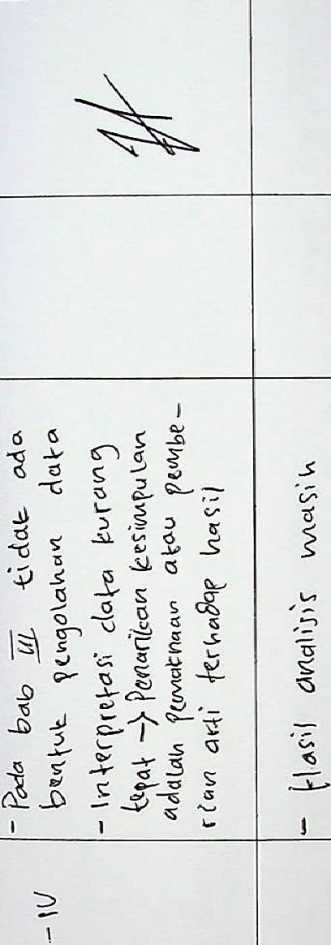 - IV
- Pada bab III tidak ada
bentuk pengolahan data
- Interpretasi data kurang
tepat → Penarikan kesimpulan
adalah pemaknaan atau pembe-
rian arti terhadap hasil
- Hasil analisis masih